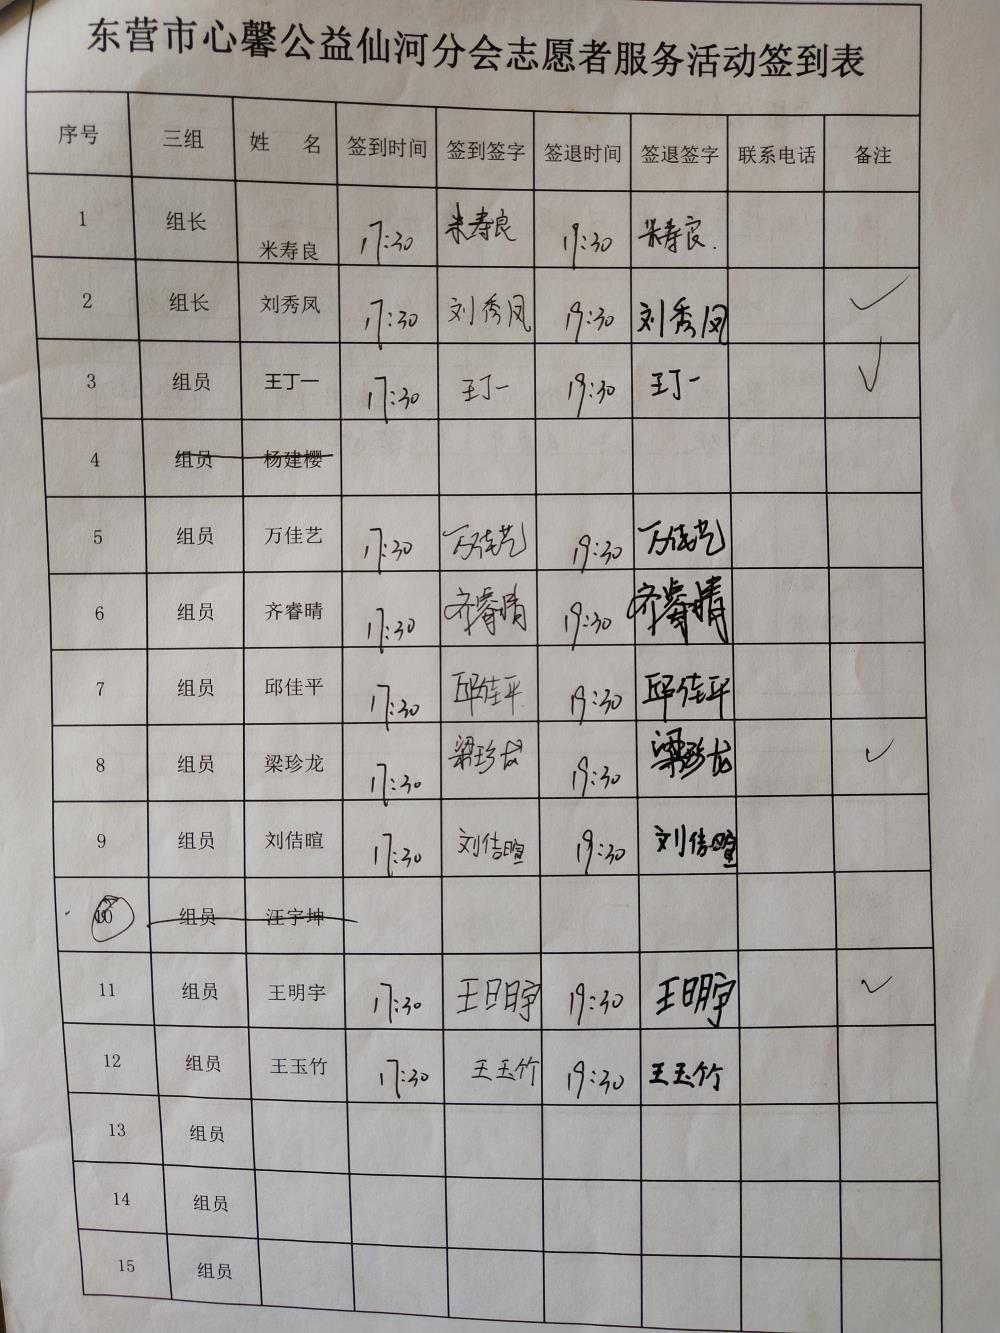 东营市心馨公益仙河分会志愿者服务活动签到表
序号 三组 姓 名 签到时间 签到签字 签退时间 签退签字 联系电话 备注
1 组长 米寿良 17:30 米寿良 19:30 米寿良.
2 组长 刘秀凤 17:30 刘秀凤 19:30 刘秀凤 ✓
3 组员 王丁一 17:30 王丁一 19:30 王丁一 ✓
4 组员 杨建樱
5 组员 万佳艺 17:30 万佳艺 19:30 万佳艺
6 组员 齐睿晴 17:30 齐睿晴 19:30 齐睿晴
7 组员 邱佳平 17:30 邱佳平 19:30 邱佳平
8 组员 梁珍龙 17:30 梁珍龙 19:30 梁珍龙 ✓
9 组员 刘佶暄 17:30 刘佶暄 19:30 刘佶暄
10 组员 汪宇坤
11 组员 王明宇 17:30 王明宇 19:30 王明宇 ✓
12 组员 王玉竹 17:30 王玉竹 19:30 王玉竹
13 组员
14 组员
15 组员